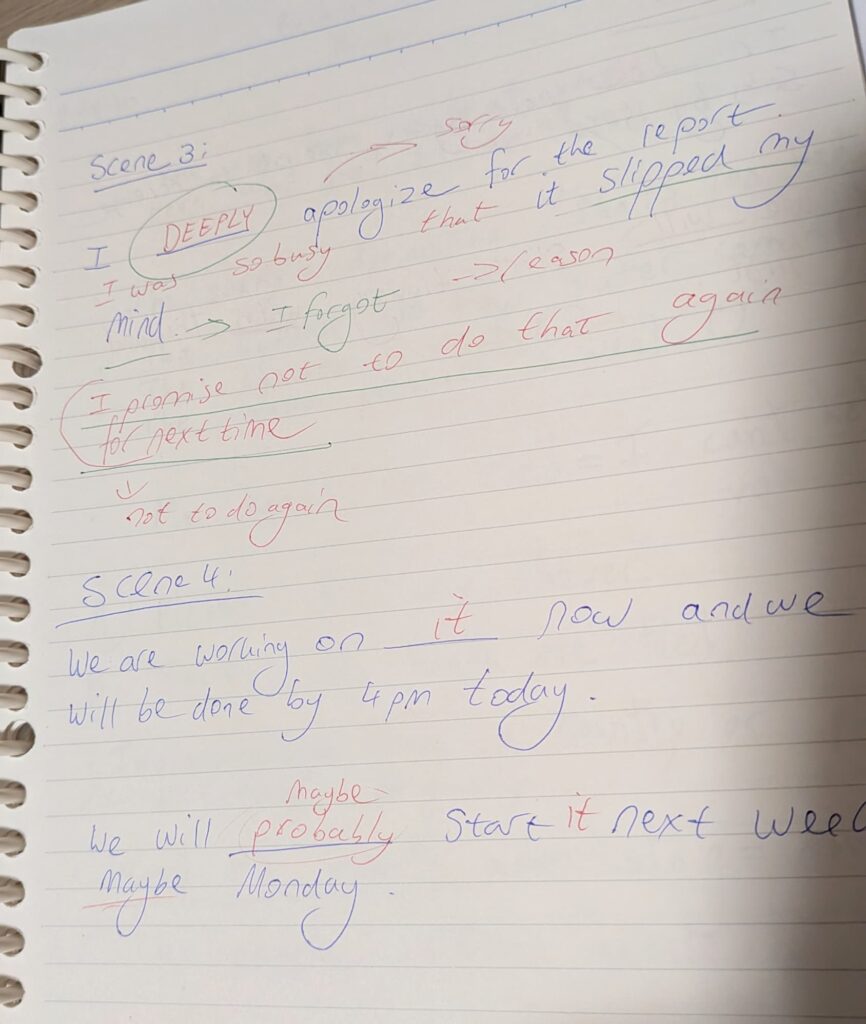 Scene 3:
sorry
I DEEPLY apologize for the report.
I was so busy that it slipped my
mind. → I forgot → reason
I promise not to do that again
for next time
↓
not to do again
Scene 4:
We are working on it now and we
will be done by 4 pm today.
maybe
We will probably start it next week
Maybe Monday.